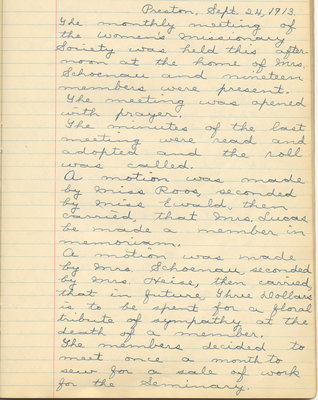 Preston, Sept. 24, 1913.
The monthly meeting of
the Women's Missionary
Society was held this after-
noon at the home of Mrs.
Schoenau and nineteen
members were present.
The meeting was opened
with prayer.
The minutes of the last
meeting were read and
adopted and the roll
was called.
A motion was made
by Miss Roos, seconded
by Miss Ewald, then
carried, that Mrs. Lucas
be made a member in
memorium.
A motion was made
by Mrs. Schoenau, seconded
by Mrs. Heise, then carried,
that in future, Three Dollars
is to be spent for a floral
tribute of sympathy at the
death of a member.
The members decided to
meet once a month to
sew for a sale of work
for the Seminary.